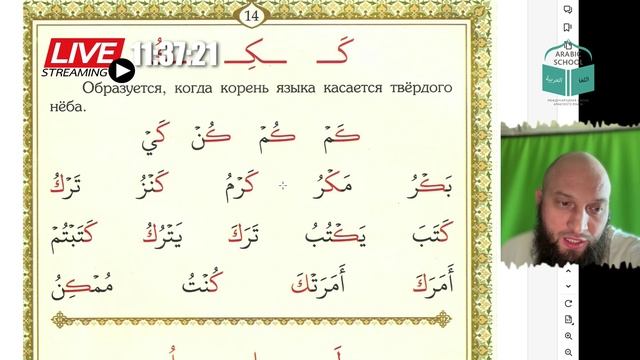 14
LIVE
STREAMING
11:37:21
ARABIC
SCHOOL
العربية
اللغة
كَـ ـكِـ ـكُ
Образуется, когда корень языка касается твёрдого
нёба.
كَمْ كُمْ كُنْ كَيْ
بَكْرُ مَكْرُ كَرْمُ كَنْزُ تَرْكُ
كَتَبَ يَكْتُبُ تَرَكَ يَتْرُكُ كَتَبْتُمْ
أَمَرَكَ أَمَرَتْكَ كُنْتُ مُمْكِنُ